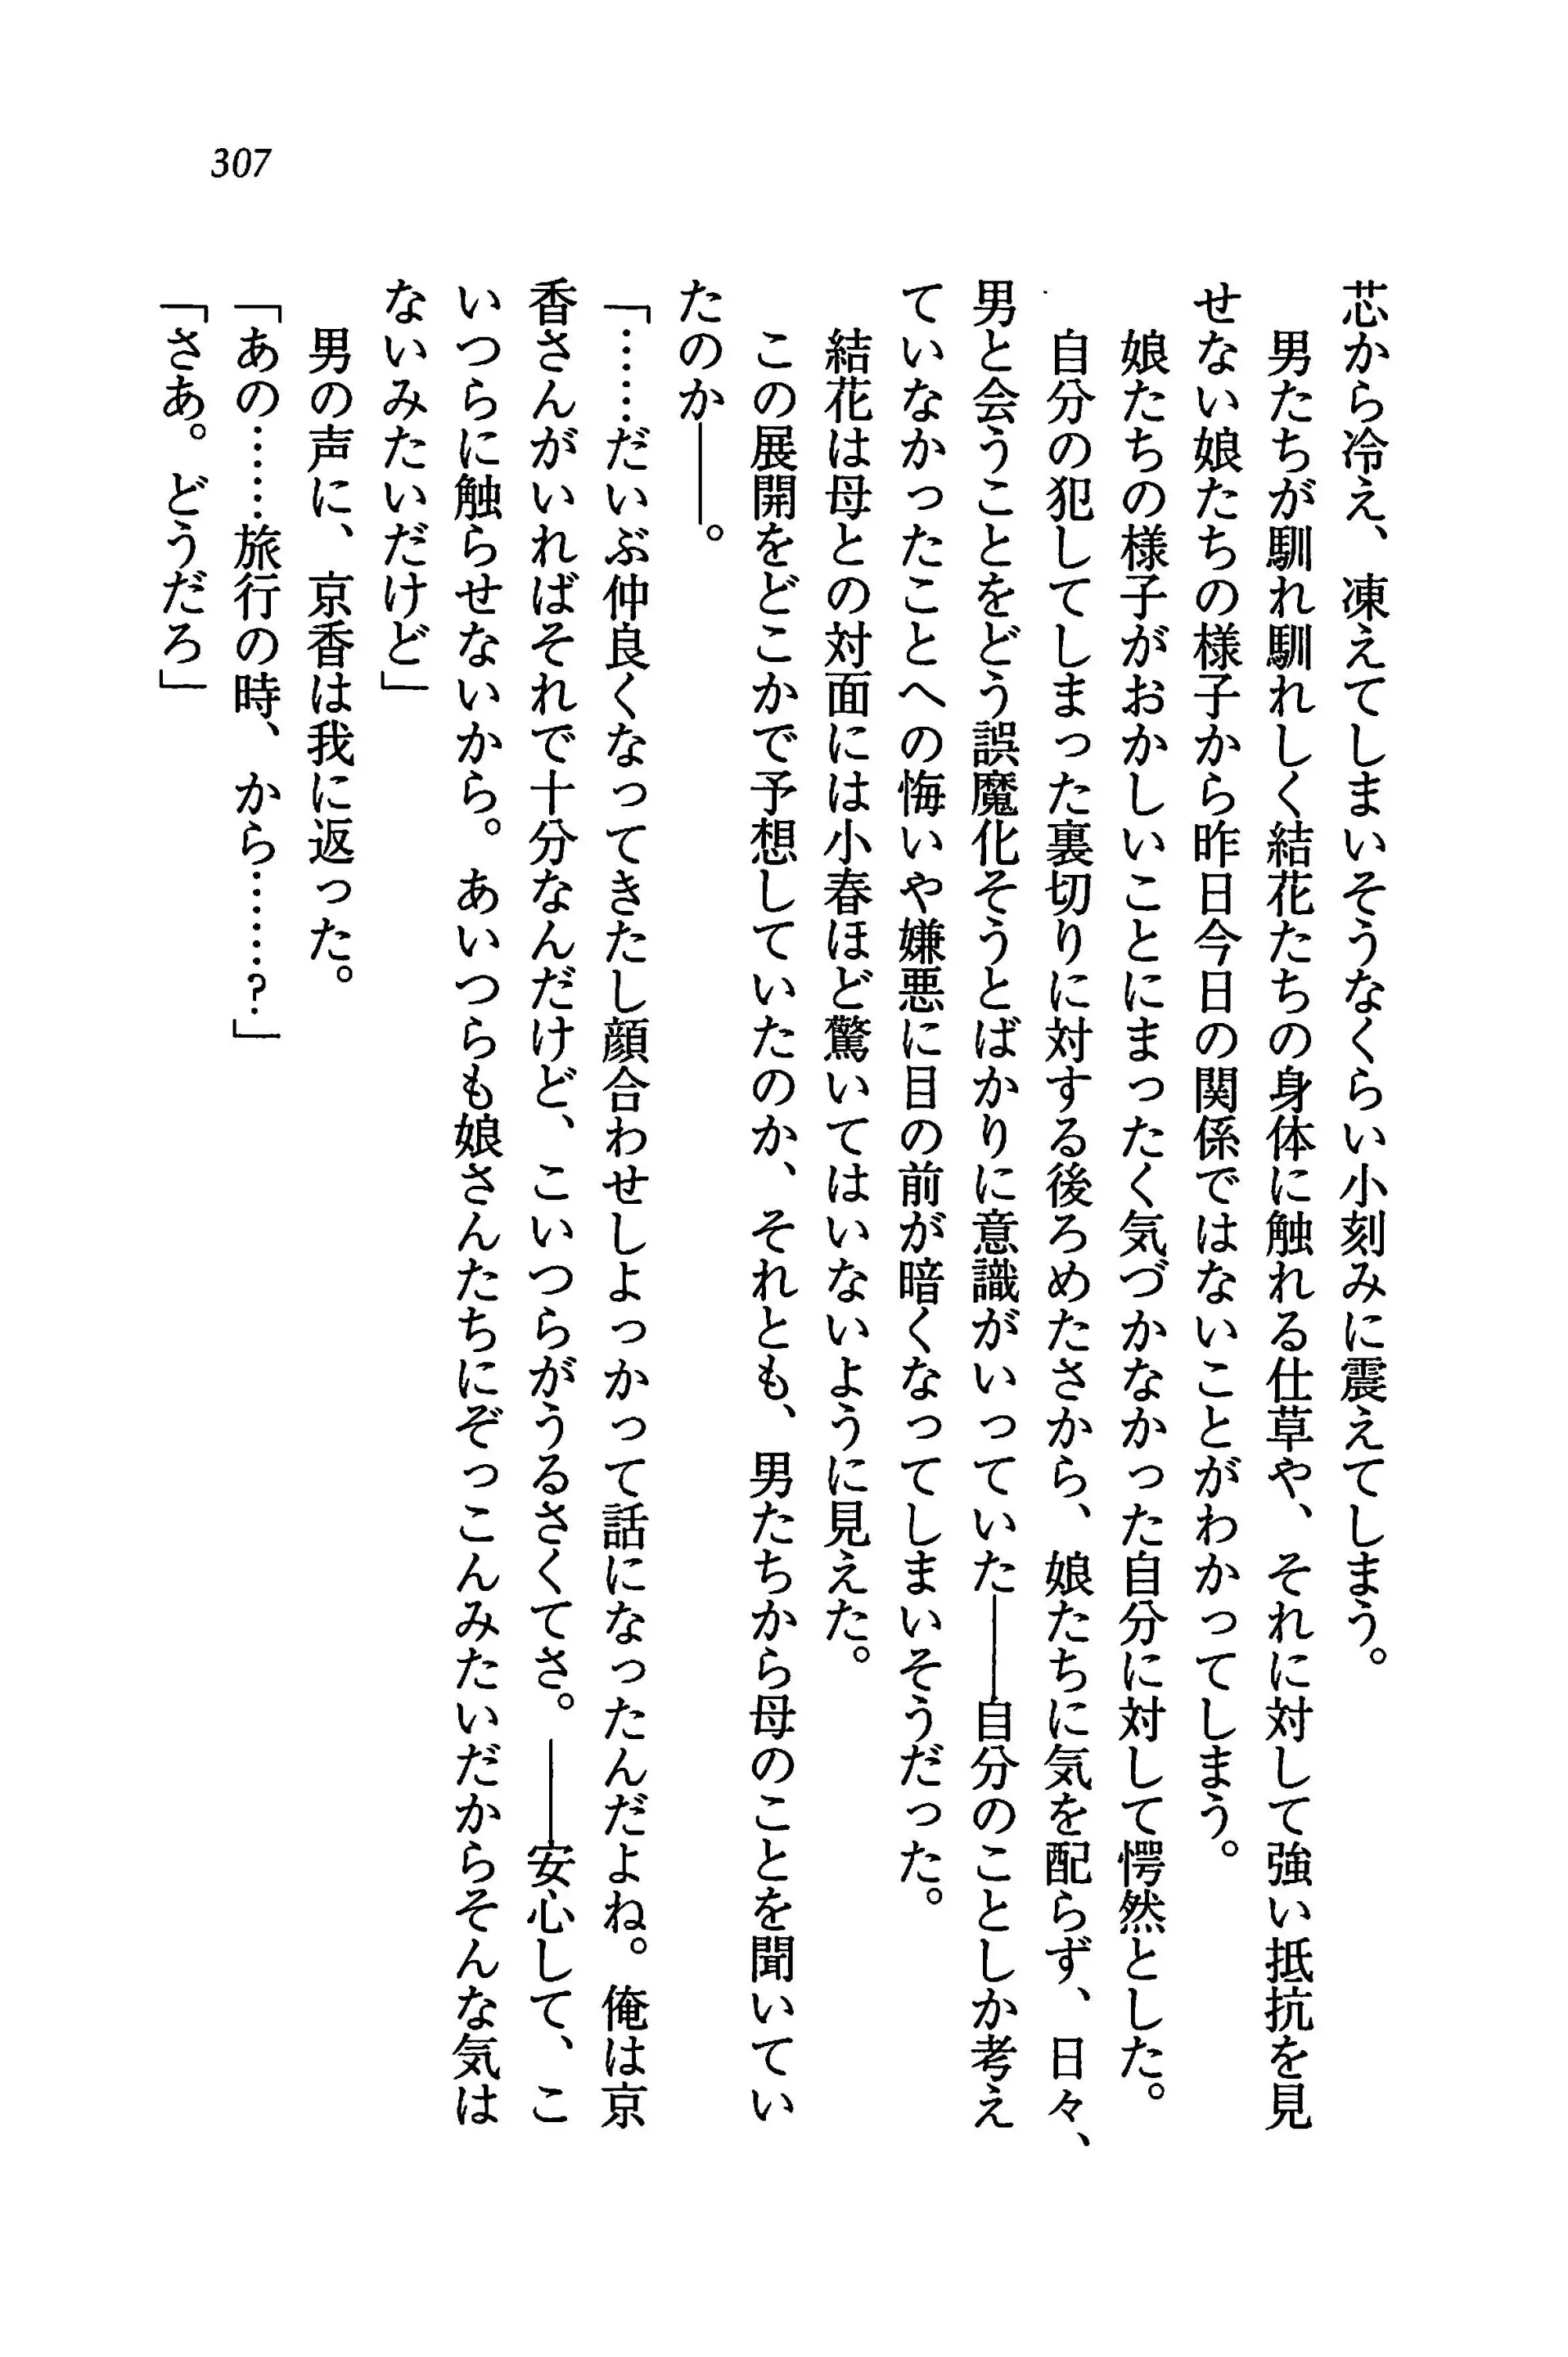 307
芯から冷え、凍えてしまいそうなくらい小刻みに震えてしまう。
男たちが馴れ馴れしく結花たちの身体に触れる仕草や、それに対して強い抵抗を見
せない娘たちの様子から昨日今日の関係ではないことがわかってしまう。
娘たちの様子がおかしいことにまったく気づかなかった自分に対して愕然とした。
自分の犯してしまった裏切りに対する後ろめたさから、娘たちに気を配らず、日々、
男と会うことをどう誤魔化そうとばかりに意識がいっていた――自分のことしか考え
ていなかったことへの悔いや嫌悪に目の前が暗くなってしまいそうだった。
結花は母との対面には小春ほど驚いてはいないように見えた。
この展開をどこかで予想していたのか、それとも、男たちから母のことを聞いてい
たのか――。
「……だいぶ仲良くなってきたし顔合わせしよっかって話になったんだよね。俺は京
香さんがいればそれで十分なんだけど、こいつらがうるさくてさ。――安心して、こ
いつらに触らせないから。あいつらも娘さんたちにぞっこんみたいだからそんな気は
ないみたいだけど」
男の声に、京香は我に返った。
「あの……旅行の時、から……？」
「さあ。どうだろ」